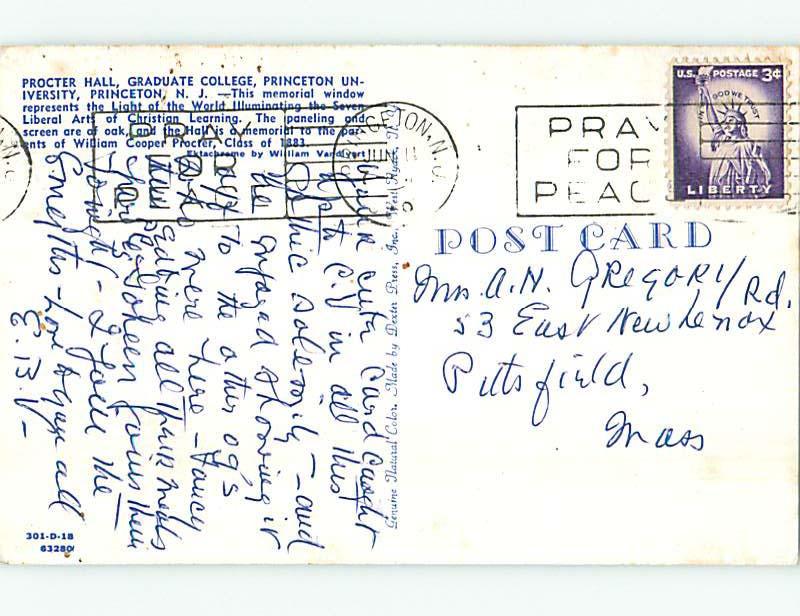 PROCTER HALL, GRADUATE COLLEGE, PRINCETON UN-
IVERSITY, PRINCETON, N. J. —This memorial window
represents the Light of the World Illuminating the Seven
Liberal Arts of Christian Learning. The paneling and
screen are of oak, and the Hall is a memorial to the par-
ents of William Cooper Procter, Class of 1883.
Ektachrome by William Vandivert
card caught
C.V in all this
Gothic solemnity — and
he enjoyed showing it
off to the other og's
who were here — Fancy
eating all their meals
Doreen joins them
tonight — I join the
Smeaths — Love to you all
E.B.V —
301-D-18
63280
Genuine Natural Color. Made by Dexter Press, Inc., West Nyack, N. Y.
N.J.
JUN
PRAY
FOR
PEACE
U.S. POSTAGE 3¢
IN GOD WE TRUST
LIBERTY
POST CARD
Mrs A.N. GREGORY
53 East New Lenox Rd.
Pittsfield,
Mass